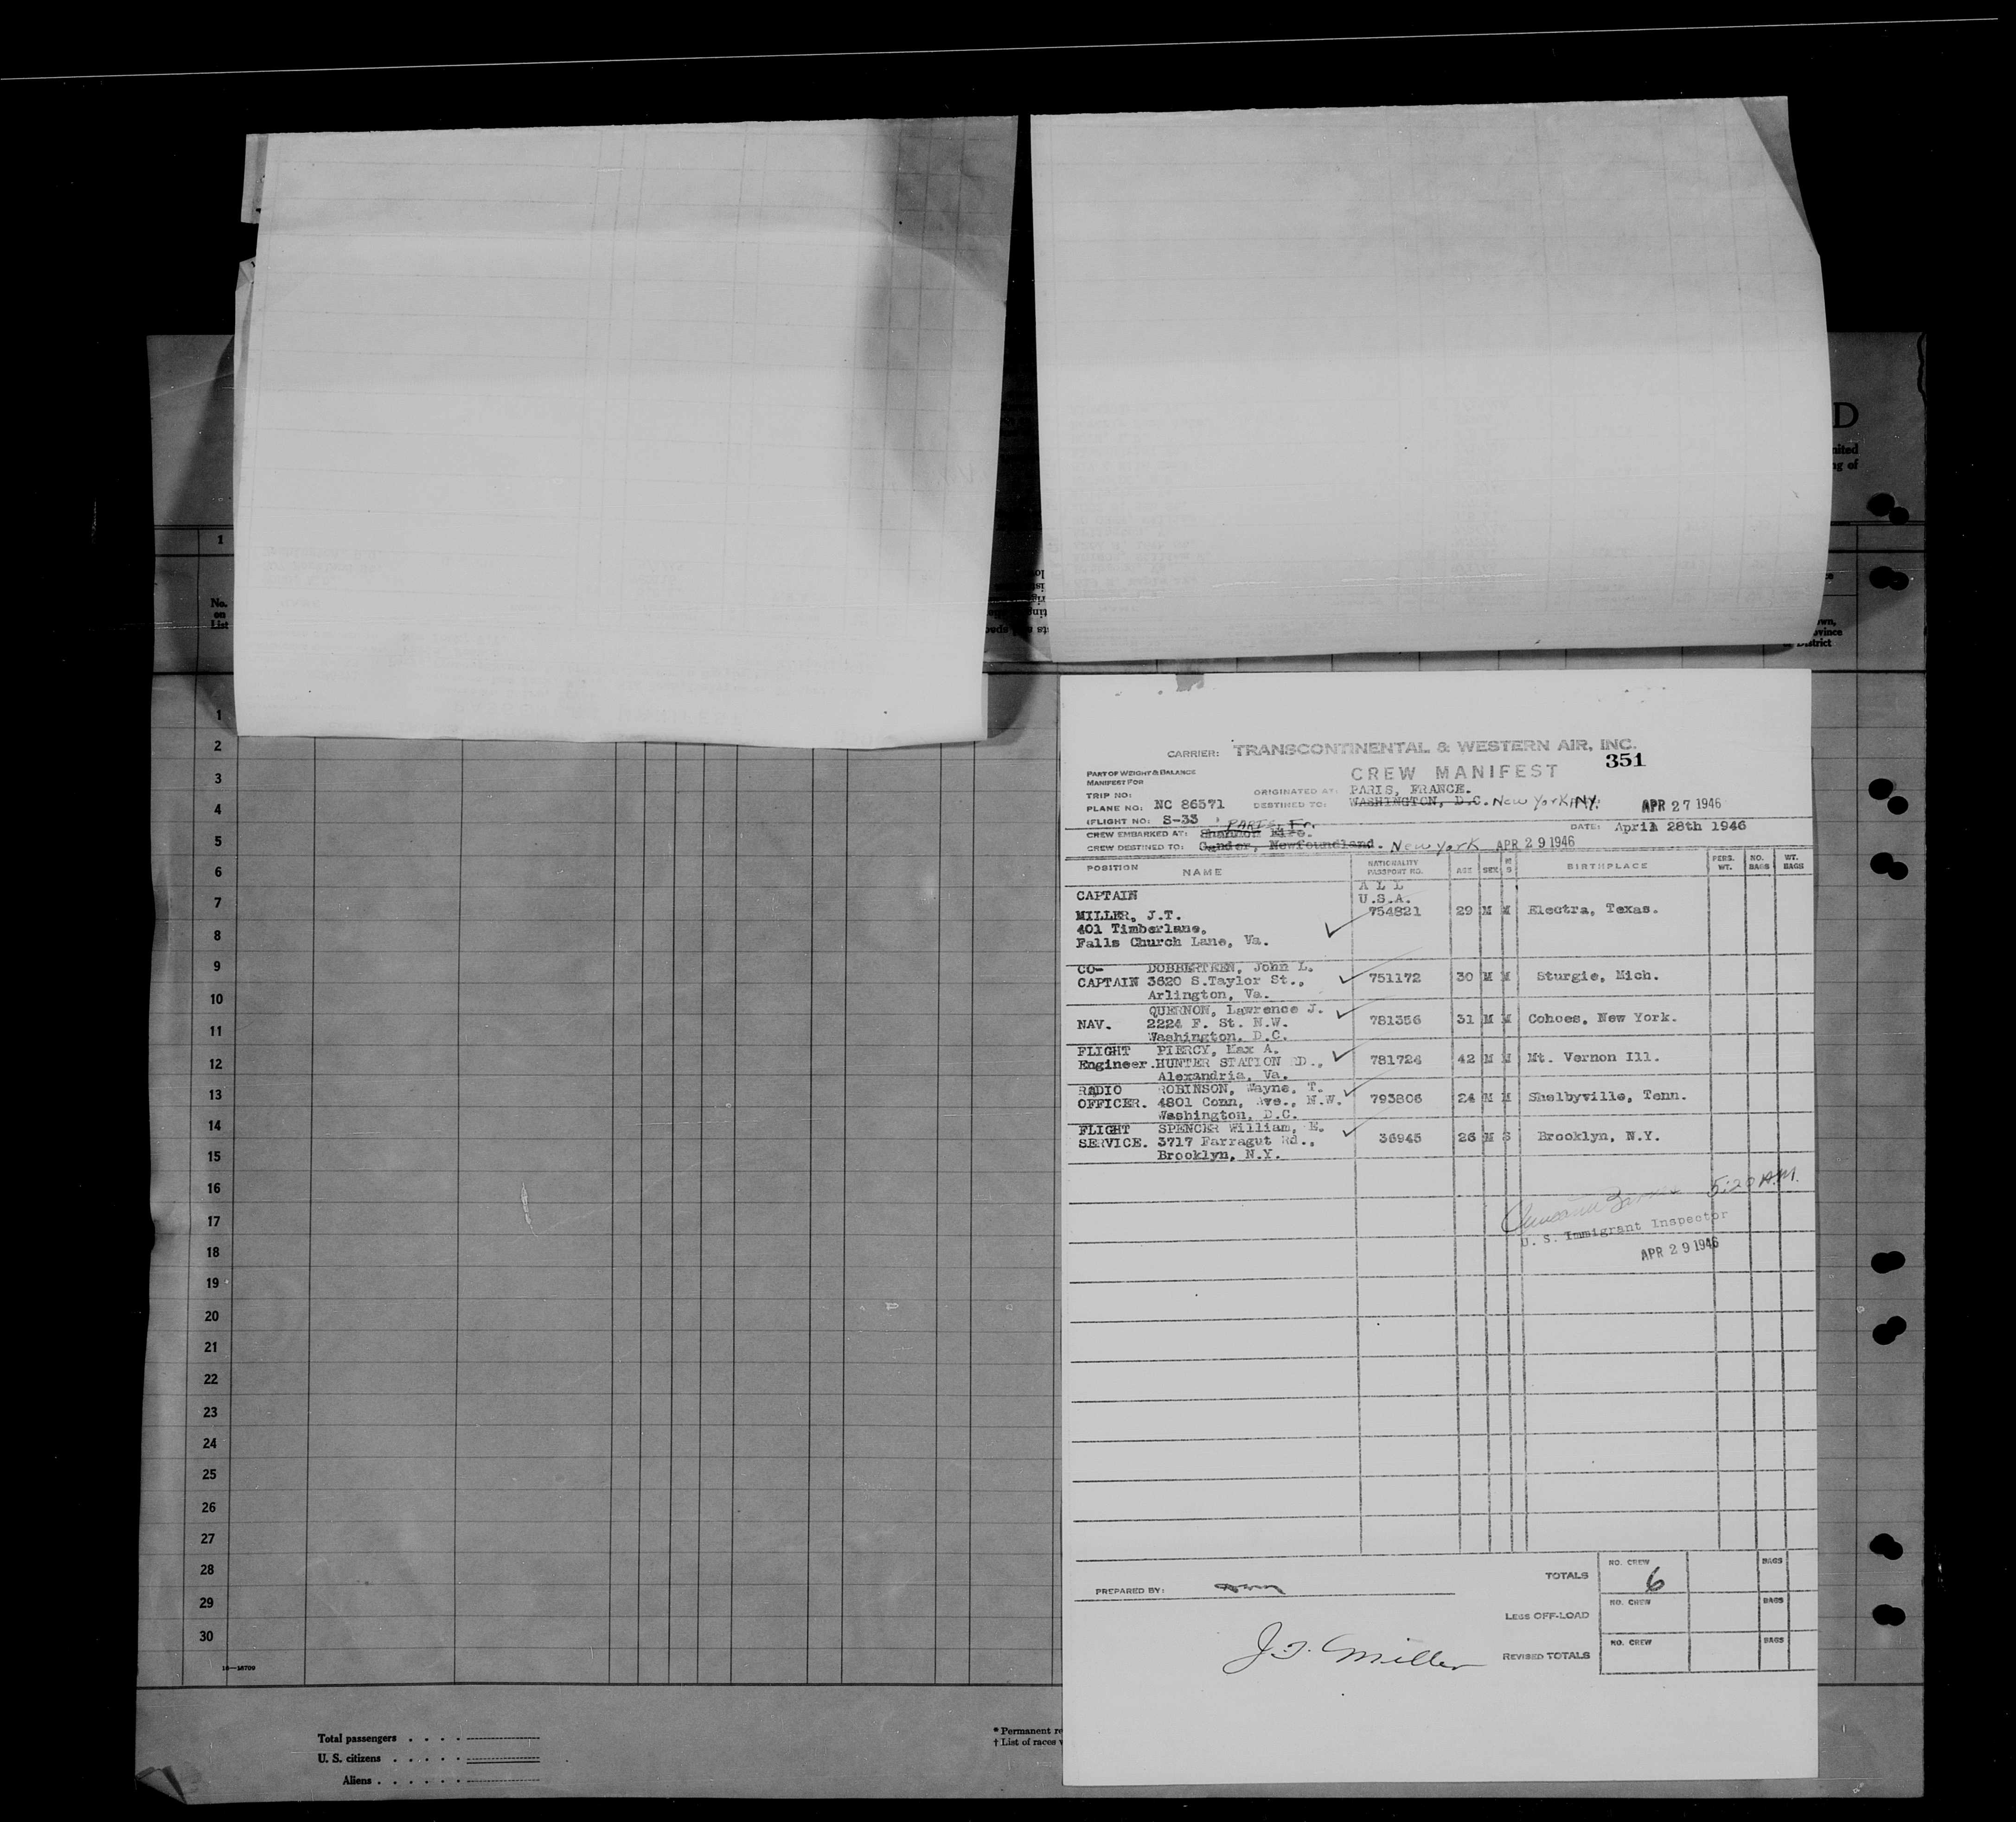 D
nited
ng of
1
No.
on
List
own,
ovince
District
1
2
3
4
5
6
7
8
9
10
11
12
13
14
15
16
17
18
19
20
21
22
23
24
25
26
27
28
29
30
16—18709
Total passengers
U. S. citizens
Aliens
* Permanent re
† List of races w
CARRIER: TRANSCONTINENTAL & WESTERN AIR, INC.
351
PART OF WEIGHT & BALANCE
MANIFEST FOR
CREW MANIFEST
TRIP NO: ORIGINATED AT: PARIS, FRANCE.
PLANE NO: NC 86571 DESTINED TO: WASHINGTON, D.C. New York, NY. APR 27 1946
FLIGHT NO: S-33 PARIS, Fr. DATE: April 28th 1946
CREW EMBARKED AT: Shannon Eire.
CREW DESTINED TO: Gander, Newfoundland. New York APR 29 1946
POSITION NAME NATIONALITY PASSPORT NO. AGE SEX M S BIRTHPLACE PERS. WT. NO. BAGS WT. BAGS
ALL
CAPTAIN U.S.A.
MILLER, J.T. 754821 29 M M Electra, Texas.
401 Timberlane,
Falls Church Lane, Va.
CO- DOBBERTEEN, John L.
CAPTAIN 3620 S.Taylor St., 751172 30 M M Sturgis, Mich.
Arlington, Va.
QUERNON, Lawrence J.
NAV. 2224 F. St. N.W. 781356 31 M M Cohoes, New York.
Washington, D.C.
FLIGHT PIERCY, Max A.
Engineer. HUNTER STATION RD., 781724 42 M M Mt. Vernon Ill.
Alexandria, Va.
RADIO ROBINSON, Wayne, T.
OFFICER. 4801 Conn, Ave., N.W. 793806 24 M M Shelbyville, Tenn.
Washington, D.C.
FLIGHT SPENCER William, E.
SERVICE. 3717 Farragut Rd., 36945 26 M S Brooklyn, N.Y.
Brooklyn, N.Y.
5:20 A.M.
U. S. Immigrant Inspector
APR 29 1946
TOTALS NO. CREW 6 BAGS
PREPARED BY:
LEGS OFF-LOAD NO. CREW BAGS
REVISED TOTALS NO. CREW BAGS
J.T. Miller